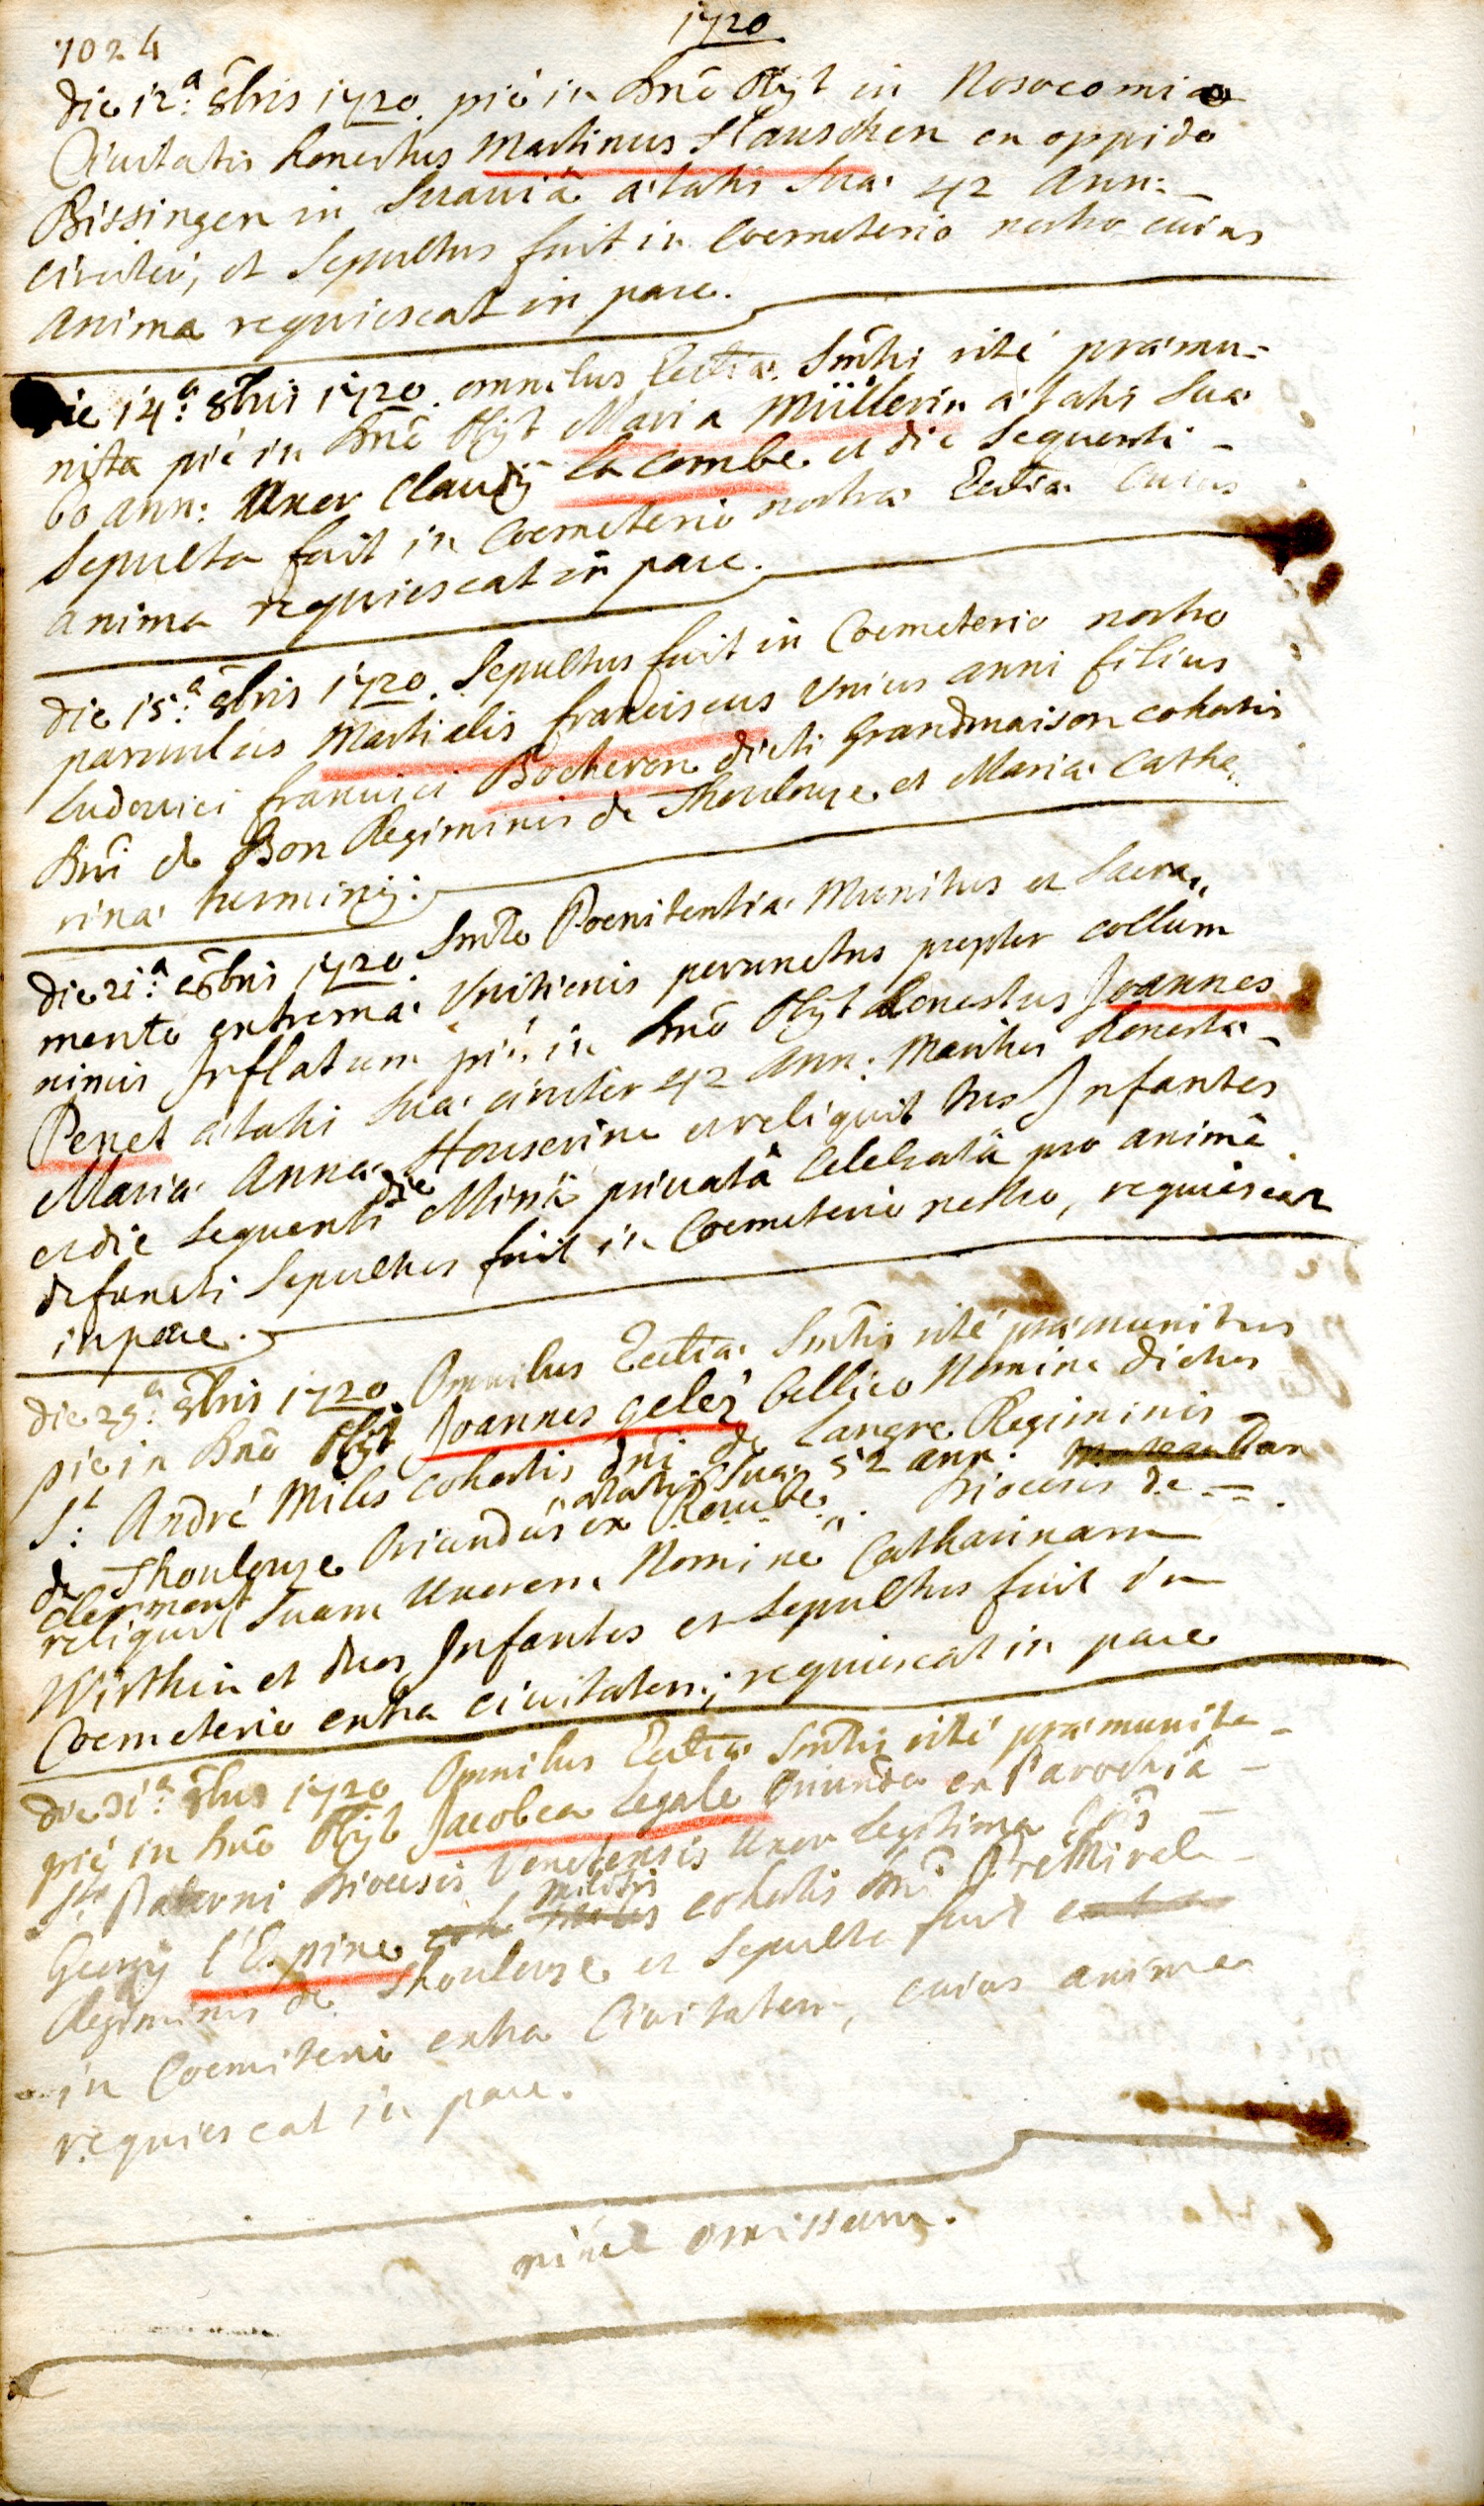 1024
1720
die 12.ª 8bris 1720. pié in Dnō Obijt in Nosocomio
Civitatis honestus Martinus Hauschen ex oppido
Bissingen in Suaviâ ætatis suæ 42 Ann:
circiter, et Sepultus fuit in Coemeterio nostro cuius
anima requiescat in pace.
Die 14.ª 8bris 1720. omnibus Ecclīæ Smtis rité præmu-
nita pié in Dnō Obijt Maria Müllerin ætatis suæ
60 ann: Uxor Claudij La Combe et die sequenti
Sepulta fuit in Coemeterio nostræ Ecclīæ cuius
anima requiescat in pace.
die 15.ª 8bris 1720. Sepultus fuit in Coemeterio nostro
parvulus Martialis franciscus unius anni filius
Ludovici francisci Bocheron dicti Grandmaison cohortis
Dni de Bon Regiminis de Thoulouze et Mariæ Catha
rinæ
die 21.ª 8bris 1720. Smto Poenitentiæ Munitus et Sacra,,
mento extremæ Unctionis perunctus propter collum
nimis Inflatum pié in Dnō Obijt honestus Joannes
Penet ætatis suæ circiter 42 Ann: Maritus honestæ
Mariæ Annæ Houserine et reliquit tres Infantes
et die sequenti die Missâ privatâ Celebratâ pro animâ
defuncti Sepultus fuit in Coemeterio nostro, requiescat
in pace.
die 29.ª 8bris 1720. Omnibus Ecclīæ Smtis rité præmunitus
pié in Dnō Obijt Joannes Gelez bellico Nomine dictus
St: André Miles cohortis Dni de Langre Regiminis
de Thoulouze Oriundus ex ætatis suæ 52 ann.
Clermont Diocesis de
reliquit Suam Uxorem Nomine Catharinam
Wirthin et duos Infantes et Sepultus fuit in
Coemeterio extra civitatem; requiescat in pace
die 31.ª 8bris 1720 Omnibus Ecclīæ Smtis rité præmunita
pié in Dnō Obijt Jacobea Legale Oriunda ex Parochiâ
Sti Paterni Diocesis Venetensis Uxor legitima
militis
Georgij l'Espine cohortis Dni
Regiminis de Thoulouze et Sepulta fuit
in Coemiterio extra Civitatem, cuius anima
requiescat in pace.
nihil omissum.